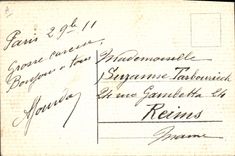 Paris 29 bre 11
Grosse caresse
Bonjour à tous
Mademoiselle
Suzanne Tarbouriech
24 rue Gambetta 24
Reims
Marne